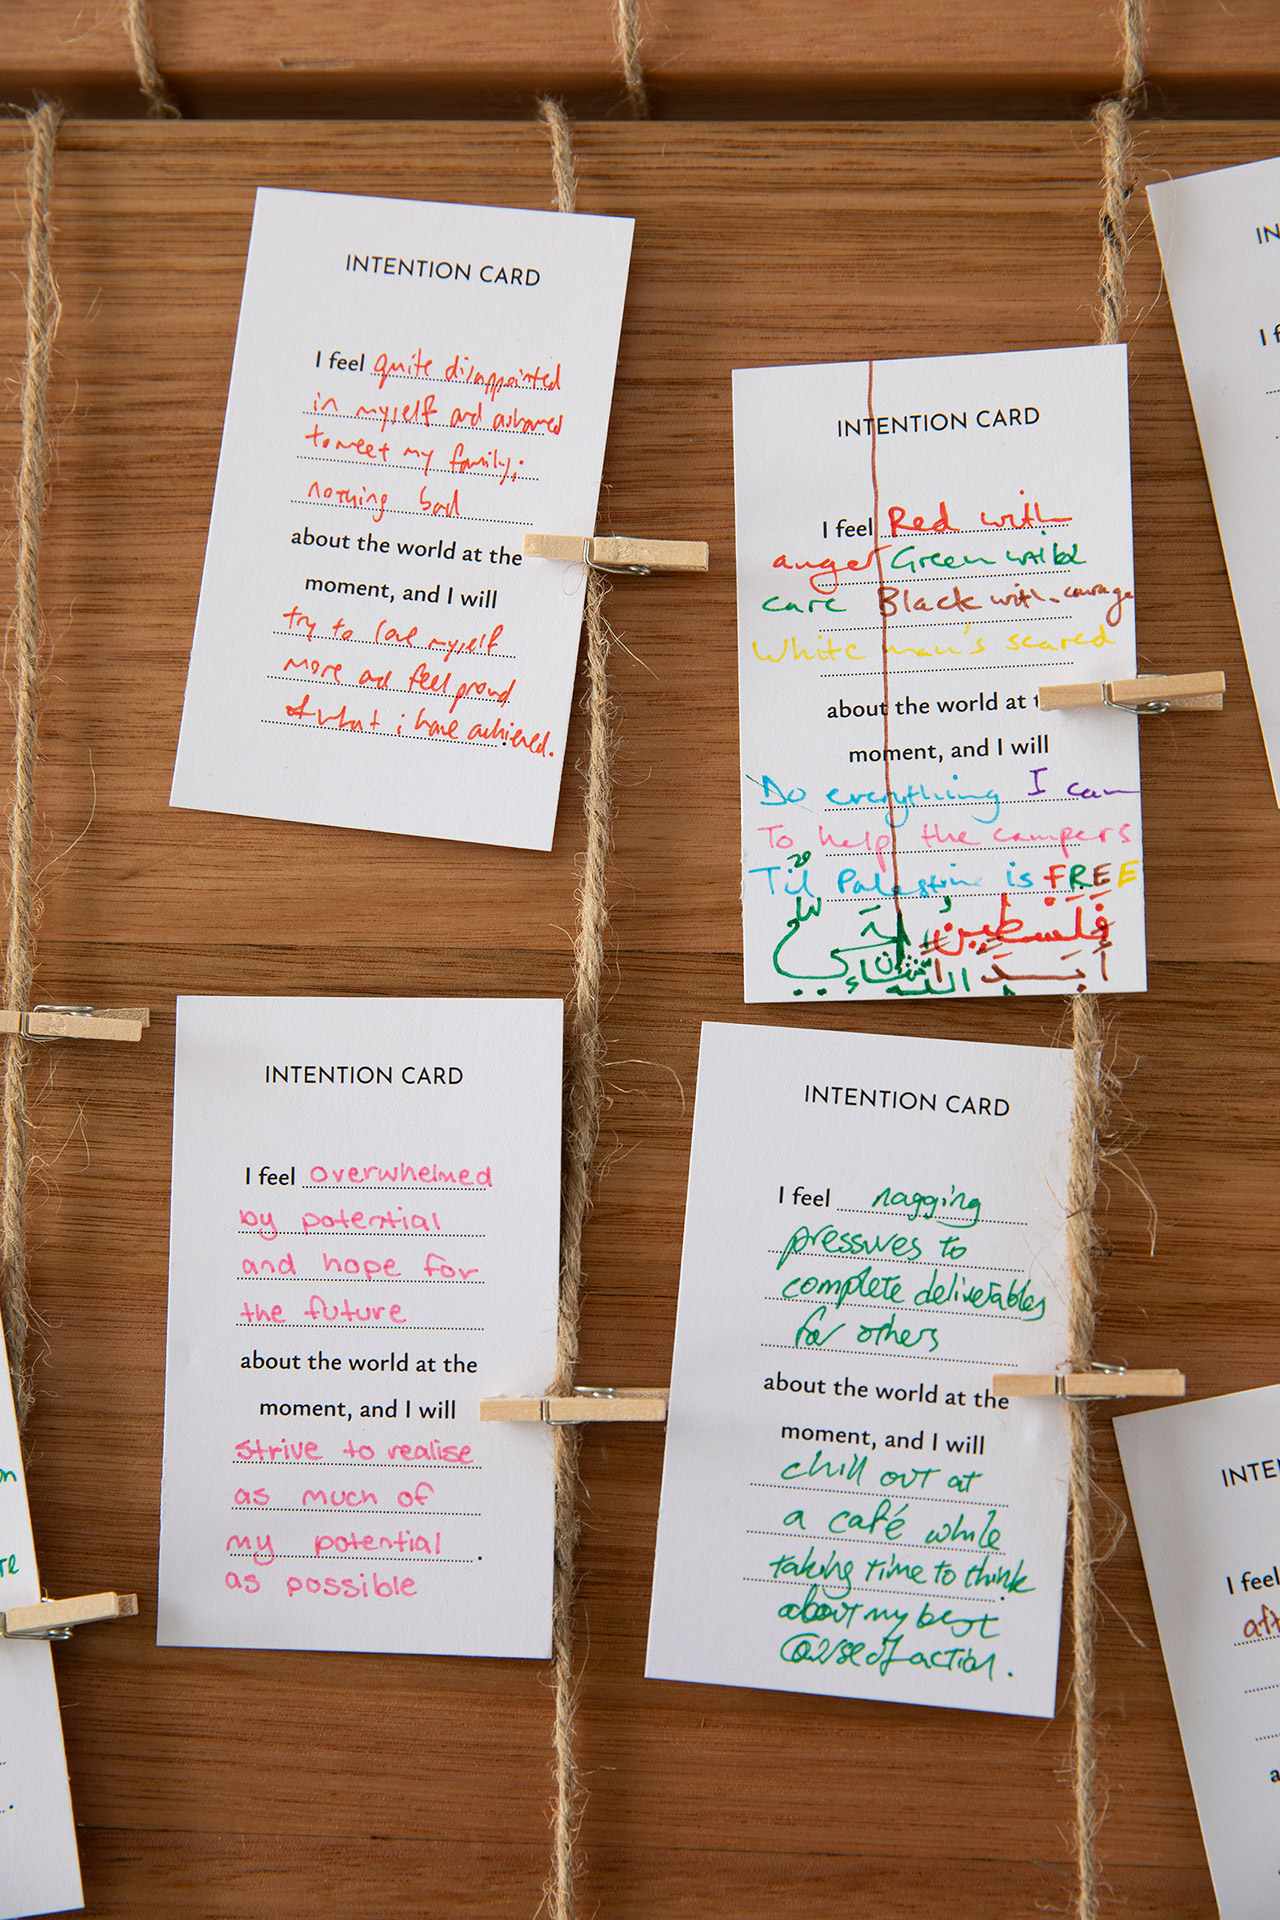 INTENTION CARD
I feel quite disappointed
in myself and ashamed
to meet my family;
nothing bad
about the world at the
moment, and I will
try to love myself
more and feel proud
of what i have achieved.
INTENTION CARD
I feel Red with
anger Green with
care Black with courage
White man's scared
about the world at
moment, and I will
Do everything I can
To help the campers
Til Palestine is FREE
فِلَسطِين
أبَداً
INTENTION CARD
I feel overwhelmed
by potential
and hope for
the future
about the world at the
moment, and I will
strive to realise
as much of
my potential .
as possible
INTENTION CARD
I feel nagging
pressures to
complete deliverables
for others
about the world at the
moment, and I will
chill out at
a café while
taking time to think
about my best
course of action.
IN
I f
INTE
I feel
aft
a